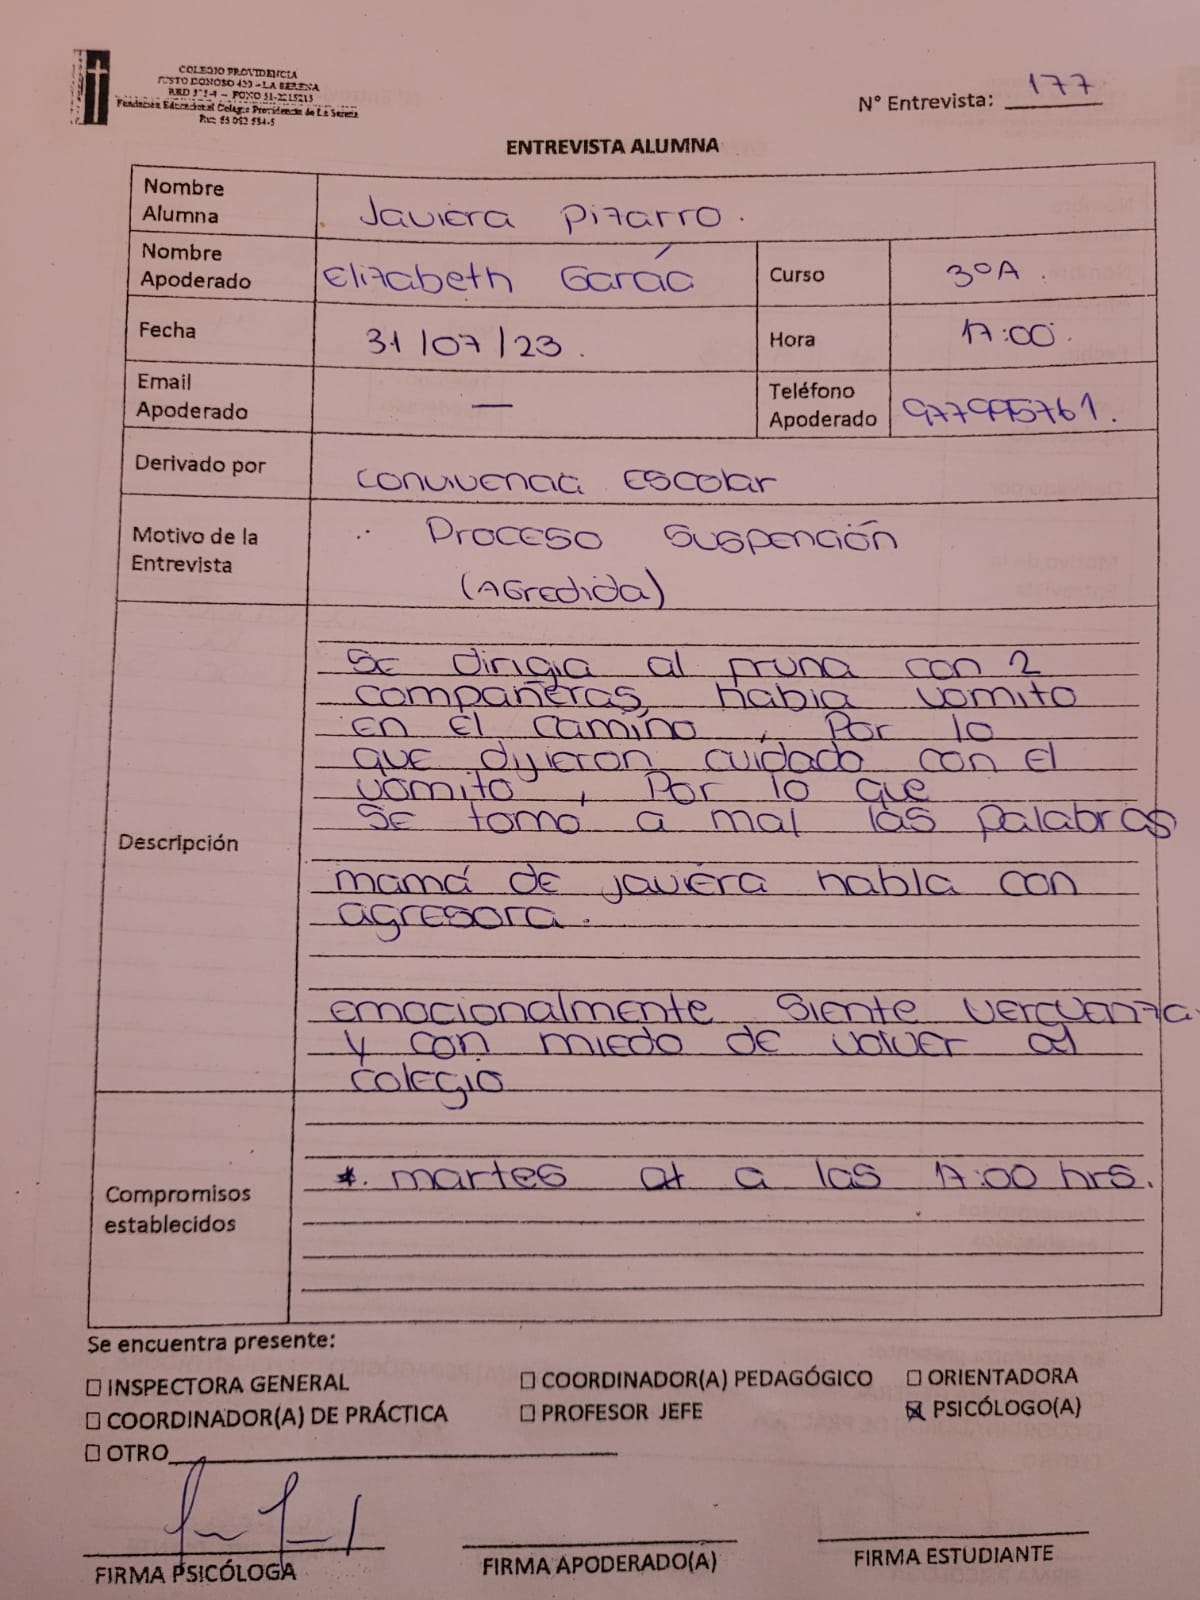 COLEGIO PROVIDENCIA
JUSTO DONOSO 420 - LA SERENA
Fundación Educacional Colegio Providencia de La Serena
N° Entrevista: 177
ENTREVISTA ALUMNA
Nombre Alumna Javiera Pizarro.
Nombre Apoderado Elizabeth Garcíá Curso 3°A.
Fecha 31/07/23. Hora 17:00.
Email Apoderado — Teléfono Apoderado 977995761.
Derivado por Convivencia Escolar
Motivo de la Entrevista Proceso Suspención
(Agredida)
Descripción
Se dirigia al pruna con 2
compañeras, habia vomito
en el camino, Por lo
que dijieron cuidado con el
vomito, Por lo que
se tomó a mal las palabras
mamá de javiera habla con
agresora.
Emocionalmente siente verguenza
y con miedo de volver al
colegio
Compromisos establecidos
*. martes a las 17:00 hrs.
Se encuentra presente:
☐ INSPECTORA GENERAL ☐ COORDINADOR(A) PEDAGÓGICO ☐ ORIENTADORA
☐ COORDINADOR(A) DE PRÁCTICA ☐ PROFESOR JEFE ☒ PSICÓLOGO(A)
☐ OTRO
FIRMA PSICÓLOGA FIRMA APODERADO(A) FIRMA ESTUDIANTE